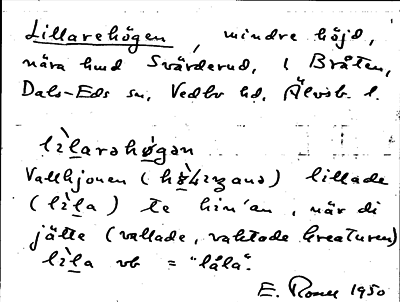 Lillarehögen, mindre höjd,
nära hmd Svärderud, i Bråten,
Dals-Eds sn, Vedbo hd, Älvsb. l.
lìlarəhø̀gən
Vallhjonen (hø̀ɭiŋana) lillade
(lìla) te hin'an, när di
jätte (vallade, vaktade kreaturen)
lìla vb = "låla".
E. 1950